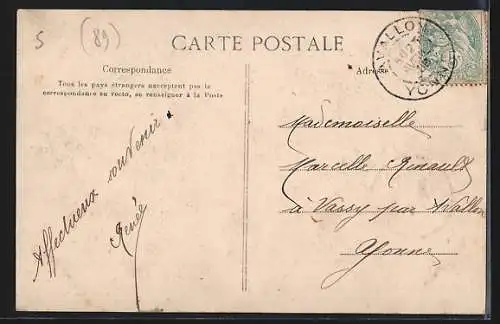 5 (89)
CARTE POSTALE
Correspondance
Tous les pays étrangers n'acceptent pas la
correspondance au recto, se renseigner à la Poste
Adresse
AVALLON
YONNE
Affectueux souvenir.
Renée
Mademoiselle
Marcelle Renault
à Vassy par Avallon
Yonne